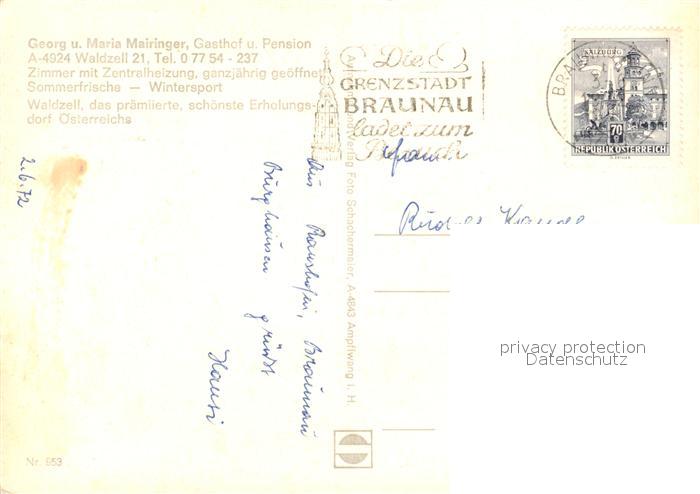 Georg u. Maria Mairinger, Gasthof u. Pension
A-4924 Waldzell 21, Tel. 0 77 54 - 237
Zimmer mit Zentralheizung, ganzjährig geöffnet
Sommerfrische — Wintersport
Waldzell, das prämiierte, schönste Erholungs-
dorf Österreichs
Die
GRENZSTADT
BRAUNAU
ladet zum
Besuch
BRAUNAU
SALZBURG
70
REPUBLIK ÖSTERREICH
2.6.72
Aus Ranshofen, Braunau
Burghausen grüßt
Hansi
Verlag Foto Schachermaier, A-4843 Ampflwang i. H.
privacy protection
Datenschutz
Nr. 953